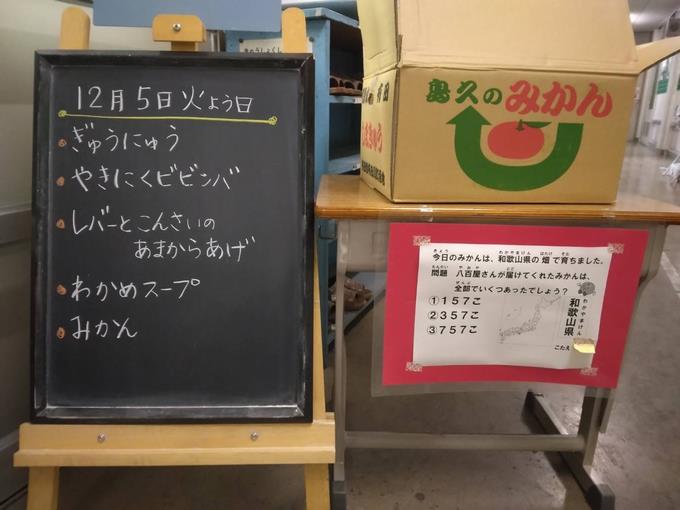 12月5日火よう日
ぎゅうにゅう
やきにくビビンバ
レバーとこんさいの
あまからあげ
わかめスープ
みかん
島久のみかん
今日のみかんは、和歌山県の畑で育ちました。
問題 八百屋さんが届けてくれたみかんは、
全部でいくつあったでしょう?
①157こ
②357こ
③757こ
和歌山県
こたえ